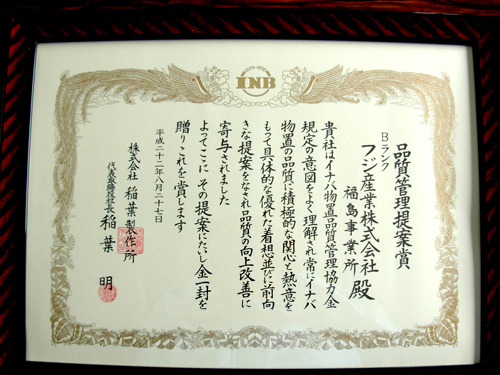 INB
品質管理提案賞
Bランク
フジ産業株式会社
福島事業所 殿
貴社はイナバ物置品質管理協力金
規定の意図をよく理解され常にイナバ
物置の品質に積極的な関心と熱意を
もって具体的な優れた着想並びに前向
きな提案をなされ品質の向上改善に
寄与されました
よってここに その提案にたいし金一封を
贈りこれを賞します
平成二十二年八月二十七日
株式会社 稲葉製作所
代表取締役社長 稲葉 明